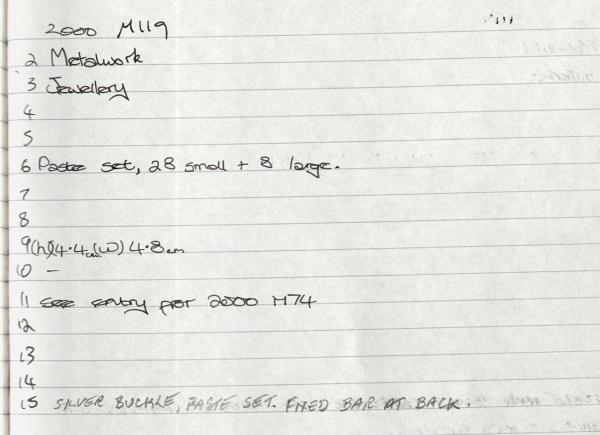 2000 M119
2 Metalwork
3 Jewellery
4
5
6 Paste set, 28 small + 8 large.
7
8
9 (h) 4.4cm (w) 4.8cm
10 –
11 see entry for 2000 M74
12
13
14
15 SILVER BUCKLE, PASTE SET. FIXED BAR AT BACK.